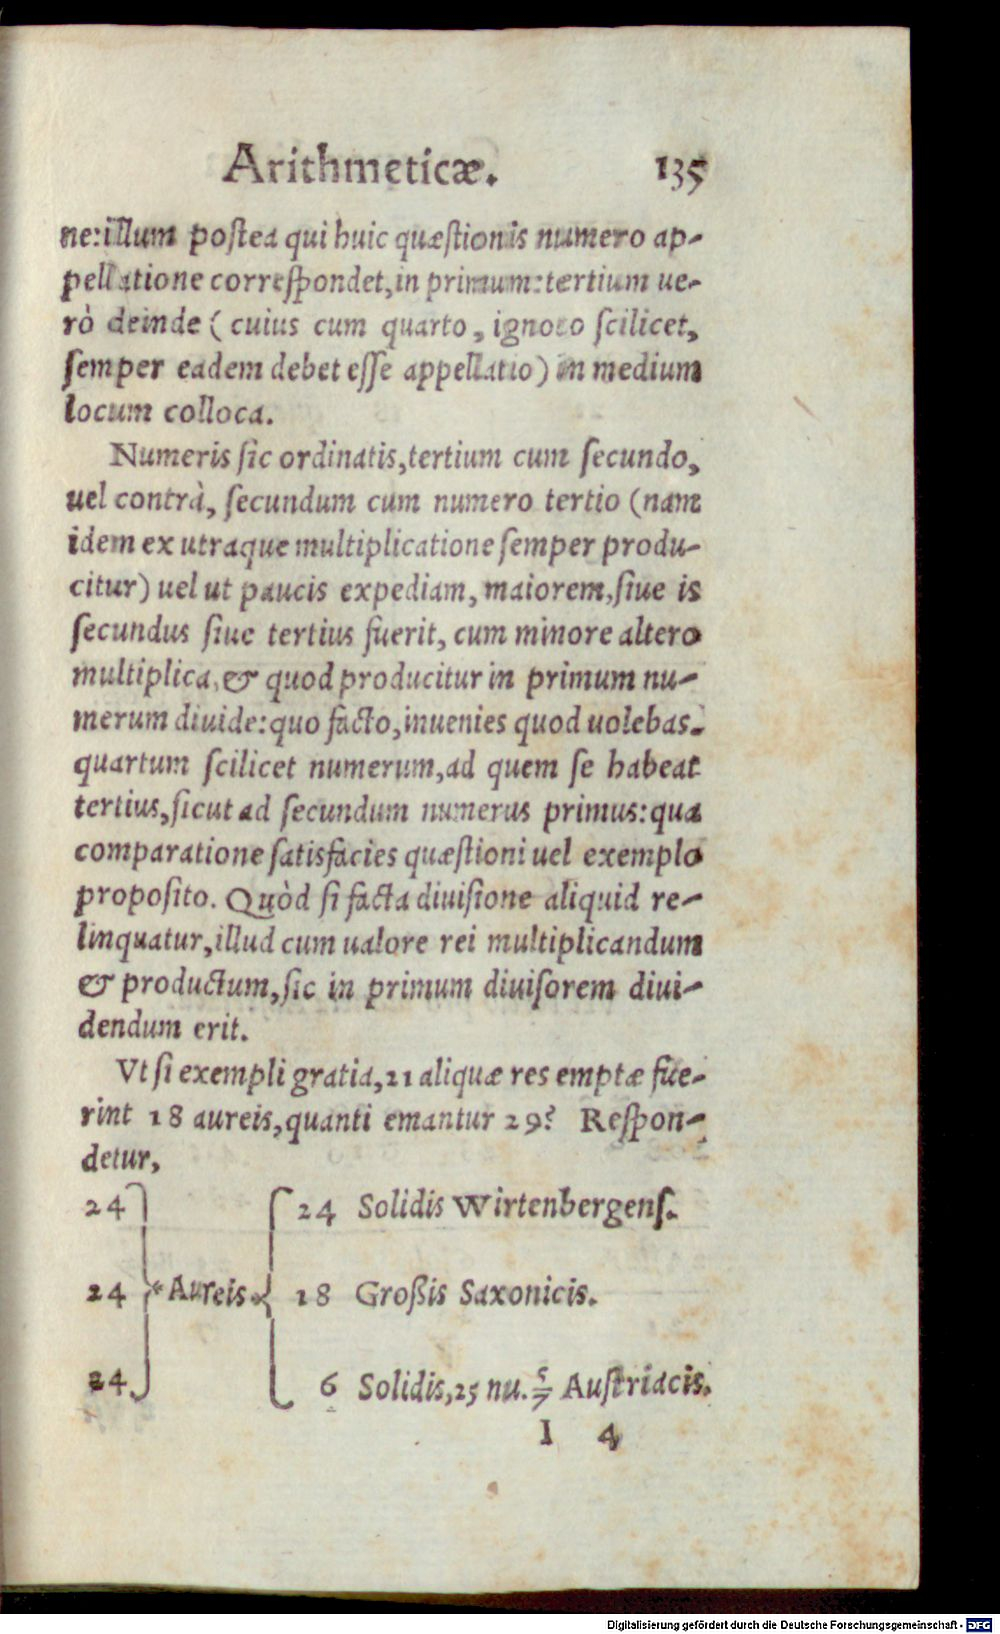 Arithmeticæ. 135
ne: illum postea qui huic quæstionis numero ap-
pellatione correspondet, in primum: tertium ue-
rò deinde ( cuius cum quarto, ignoto scilicet,
semper eadem debet esse appellatio ) in medium
locum colloca.
Numeris sic ordinatis, tertium cum secundo,
uel contrà, secundum cum numero tertio (nam
idem ex utraque multiplicatione semper produ-
citur) uel ut paucis expediam, maiorem, siue is
secundus siue tertius fuerit, cum minore altero
multiplica, & quod producitur in primum nu-
merum diuide: quo facto, inuenies quod uolebas.
quartum scilicet numerum, ad quem se habeat
tertius, sicut ad secundum numerus primus: qua
comparatione satisfacies quæstioni uel exemplo
proposito. Quòd si facta diuisione aliquid re-
linquatur, illud cum ualore rei multiplicandum
& productum, sic in primum diuisorem diui-
dendum erit.
Vt si exempli gratia, 21 aliquæ res emptæ fue-
rint 18 aureis, quanti emantur 29? Respon-
detur,
24 24 Solidis Wirtenbergens.
24 Aureis 18 Großis Saxonicis.
24 6 Solidis, 25 nu. 5/7 Austriacis.
I 4
Digitalisierung gefördert durch die Deutsche Forschungsgemeinschaft - DFG